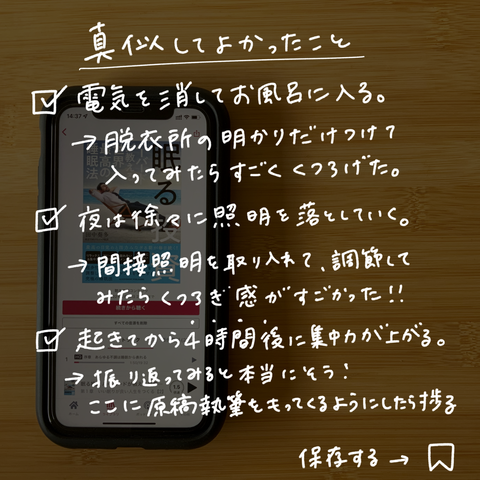 真似してよかったこと
電気を消してお風呂に入る。
→ 脱衣所の明かりだけつけて
入ってみたらすごくくつろげた。
夜は徐々に照明を落としていく。
→ 間接照明を取り入れて、調節して
みたらくつろぎ感がすごかった!!
起きてから4時間後に集中力が上がる。
→ 振り返ってみると本当にそう!
ここに原稿執筆をもってくるようにしたら捗る
保存する →
14:37
眠る